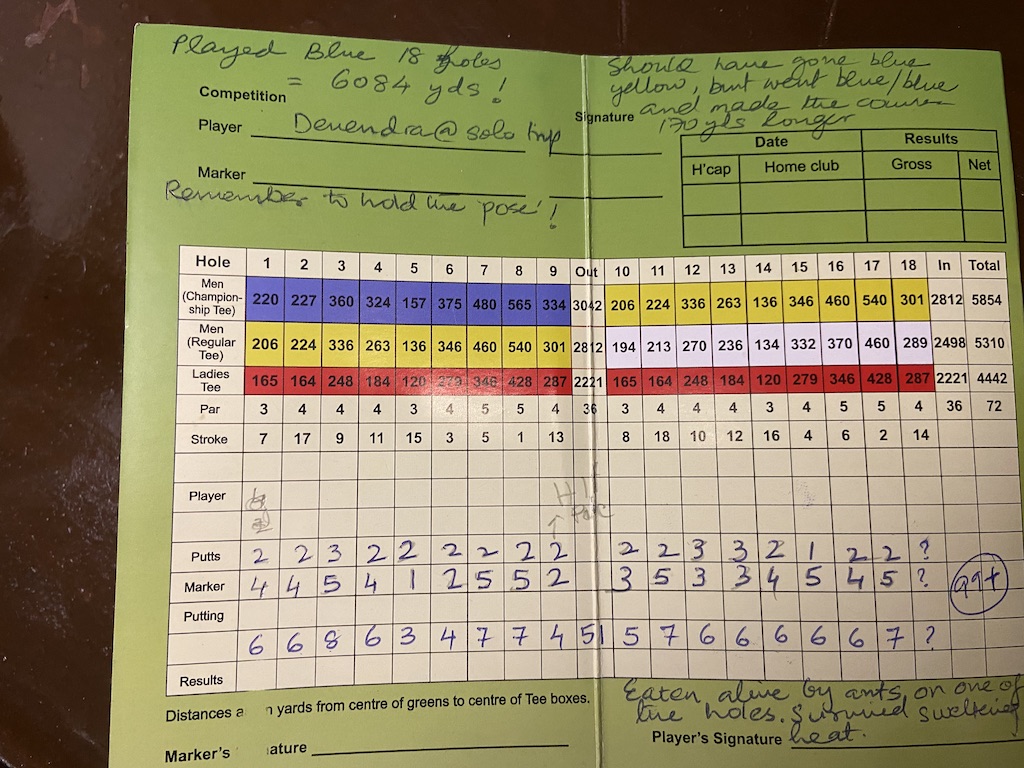 Played Blue 18 Holes
= 6084 yds!
Should have gone blue
yellow, but went blue/blue
and made the course
170 yds longer
Competition
Signature
Player Devendra @ solo trip
Marker
Remember to hold the 'pose'!
Date Results
H'cap Home club Gross Net
Hole 1 2 3 4 5 6 7 8 9 Out 10 11 12 13 14 15 16 17 18 In Total
Men (Champion-ship Tee) 220 227 360 324 157 375 480 565 334 3042 206 224 336 263 136 346 460 540 301 2812 5854
Men (Regular Tee) 206 224 336 263 136 346 460 540 301 2812 194 213 270 236 134 332 370 460 289 2498 5310
Ladies Tee 165 164 248 184 120 279 346 428 287 2221 165 164 248 184 120 279 346 428 287 2221 4442
Par 3 4 4 4 3 4 5 5 4 36 3 4 4 4 3 4 5 5 4 36 72
Stroke 7 17 9 11 15 3 5 1 13 8 18 10 12 16 4 6 2 14
Player
↑
Putts 2 2 3 2 2 2 2 2 2 2 2 3 3 2 1 2 2 ?
Marker 4 4 5 4 1 2 5 5 2 3 5 3 3 4 5 4 5 ? 99+
Putting
6 6 8 6 3 4 7 7 4 51 5 7 6 6 6 6 6 7 ?
Results
Distances a n yards from centre of greens to centre of Tee boxes.
Eaten alive by ants, on one of
the holes. Survived sweltering
heat.
Marker's ature
Player's Signature